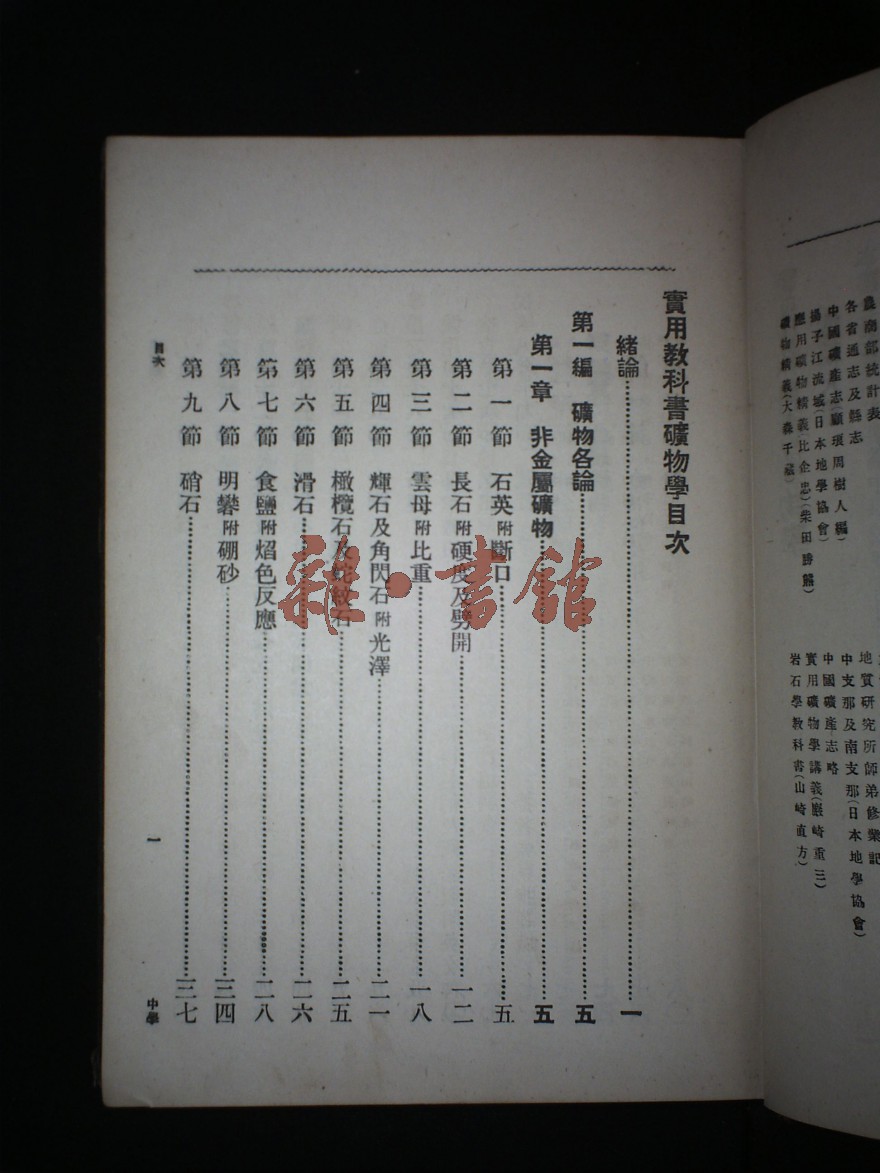 農商部統計表
各省通志及縣志
中國礦產志(顧琅周樹人編)
揚子江流域(日本地學協會)
應用礦物精義比企忠)(柴田勝熊)
礦物精義(大森千藏)
地質研究所師弟修業記
中支那及南支那(日本地學協會)
中國礦產志略
實用礦物學講義(巖崎重三)
岩石學教科書(山崎直方)
實用教科書礦物學目次
緒論 一
第一編 礦物各論 五
第一章 非金屬礦物 五
第一節 石英附斷口 五
第二節 長石附硬度及劈開 一二
第三節 雲母附比重 一八
第四節 輝石及角閃石附光澤 二一
第五節 橄欖石及蛇紋石 二五
第六節 滑石 二六
第七節 食鹽附焰色反應 二八
第八節 明礬附硼砂 三四
第九節 硝石 三七
目次
一
中學
雜·書館